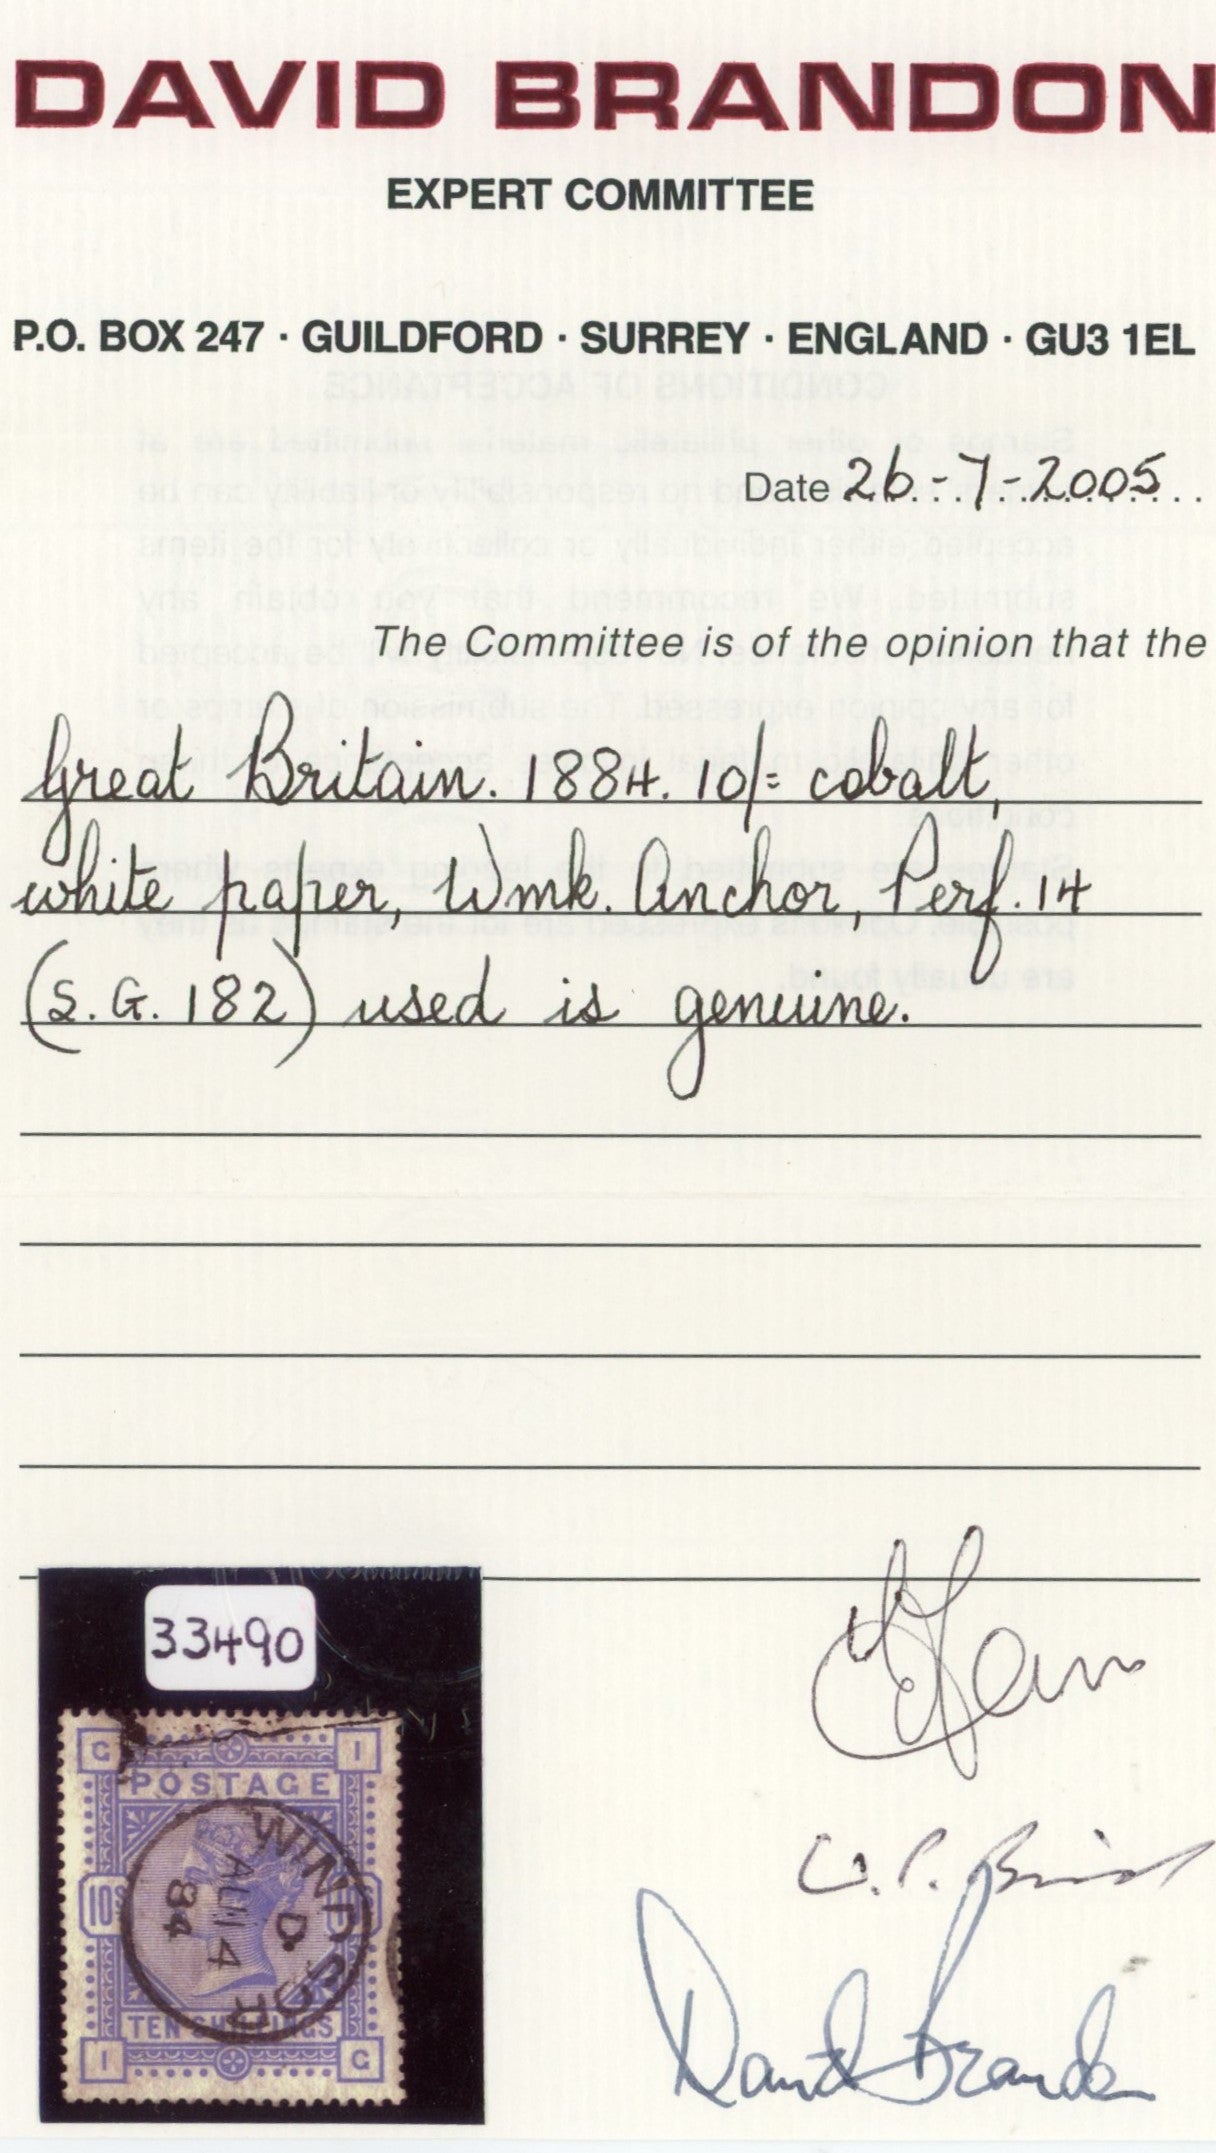 DAVID BRANDON
EXPERT COMMITTEE
P.O. BOX 247 · GUILDFORD · SURREY · ENGLAND · GU3 1EL
Date 26-7-2005
The Committee is of the opinion that the
Great Britain. 1884. 10/= cobalt,
white paper, Wmk. Anchor, Perf. 14
(S.G. 182) used is genuine.
33490
G I
POSTAGE
10S
WINDSOR
D
AU 4
84
TEN SHILLINGS
I G
David Brandon